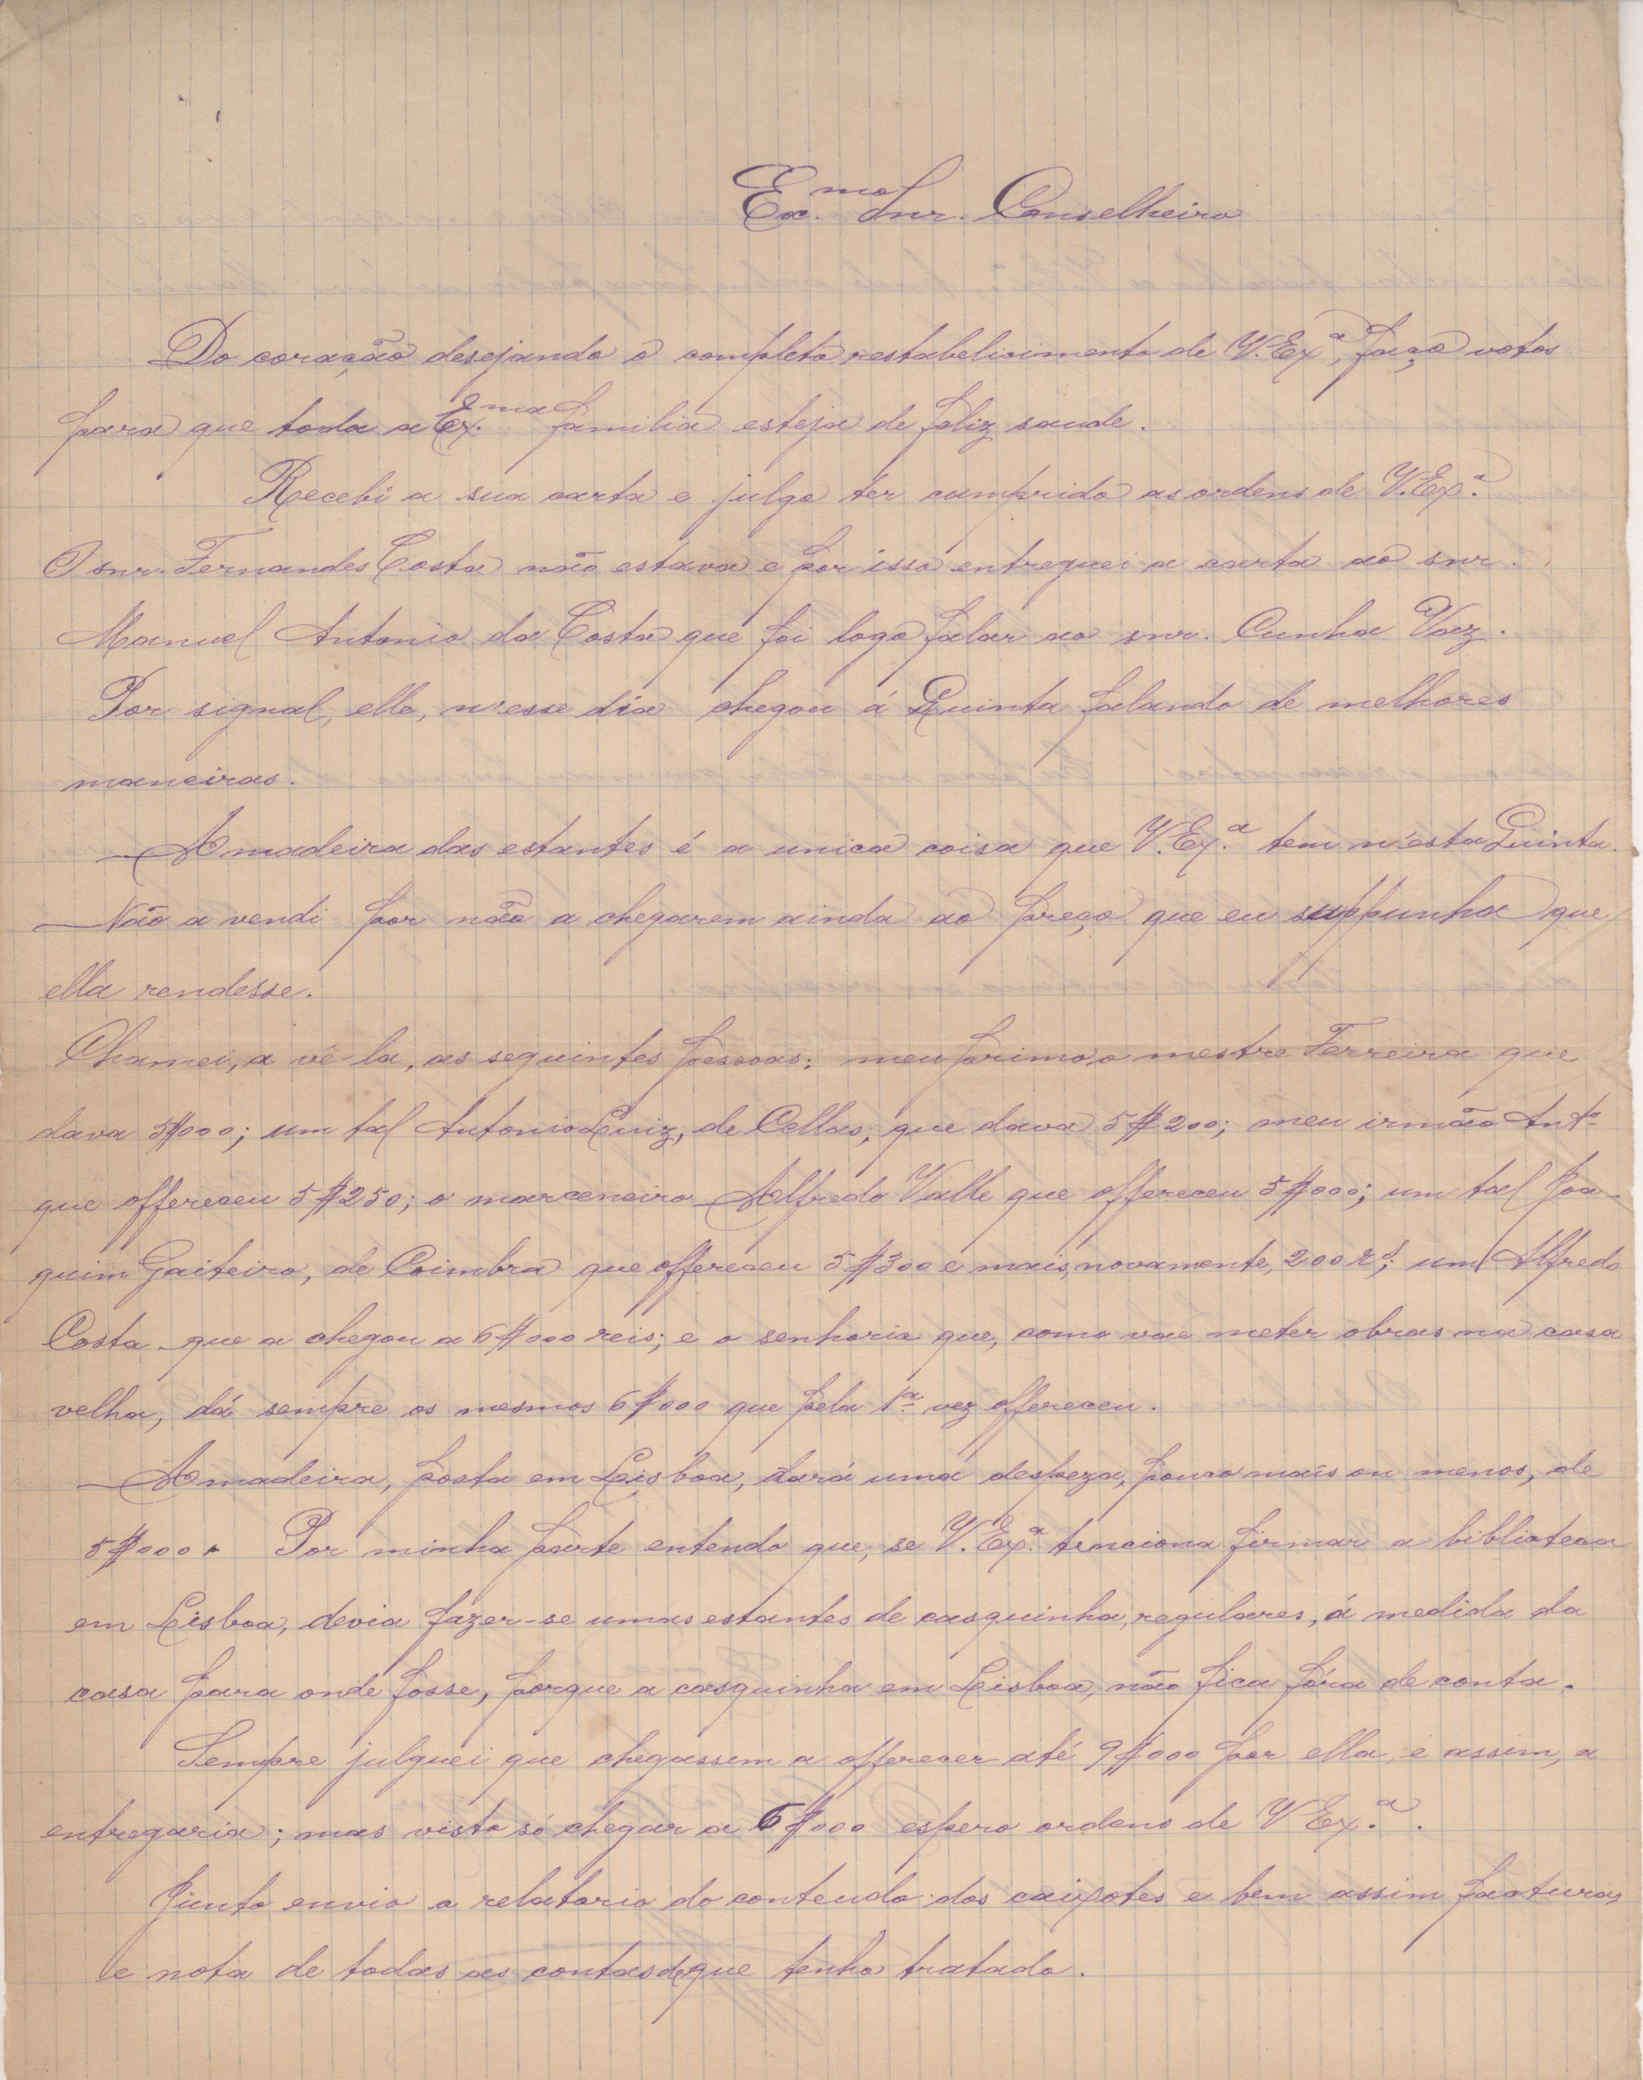 Ex.mo Snr. Conselheiro
Do coração desejando o completo restabelicimento de V. Ex.ª, faço votos
para que toda a Ex.ma familia esteja de feliz saude.
Recebi a sua carta e julgo ter cumprido as ordens de V. Ex.ª
O snr. Fernandes Costa não estava e por isso entreguei a carta ao snr.
Manuel Antonio da Costa que foi logo falar ao snr. Cunha Vaz.
Por signal, elle, n'esse dia chegou á Quinta falando de melhores
maneiras.
A madeira das estantes é a unica coisa que V. Ex.ª tem n'esta Quinta.
Não a vendi por não a chegarem ainda ao preço que eu suppunha que
ella rendesse.
Chamei, a vê-la, as seguintes pessoas: meu primo, o mestre Ferreira que
dava 5$000; um tal Antonio Luiz, de Cellas, que dava 5$200; meu irmão Ant.º
que offereceu 5$250; o marceneiro Alfredo Valle que offereceu 5$000; um tal Joa-
quim Gaiteiro, de Coimbra que offereceu 5$300 e mais, novamente, 200 rs; um Alfredo
Costa que a chegou a 6$000 reis; e o senhorio que, como vae meter obras na casa
velha, dá sempre os mesmos 6$000 que pela 1.ª vez offereceu.
A madeira, posta em Lisboa, dará uma despeza, pouco mais ou menos, de
5$000. Por minha parte entendo que, se V. Ex.ª tenciona firmar a biblioteca
em Lisboa, devia fazer-se umas estantes de casquinha, regulares, á medida da
casa para onde fosse, porque a casquinha em Lisboa, não fica fóra de conta.
Sempre julguei que chegassem a offerecer até 9$000 por ella, e assim, a
entregaria; mas visto só chegar a 6$000 espero ordens de V Ex.ª.
Junto envio o relatorio do contendo dos caixotes e bem assim facturas,
e nota de todas as contas de que tenho tratado.